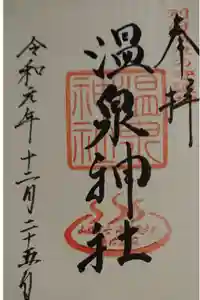 奉拝
温泉神社
令和元年十二月二十五日